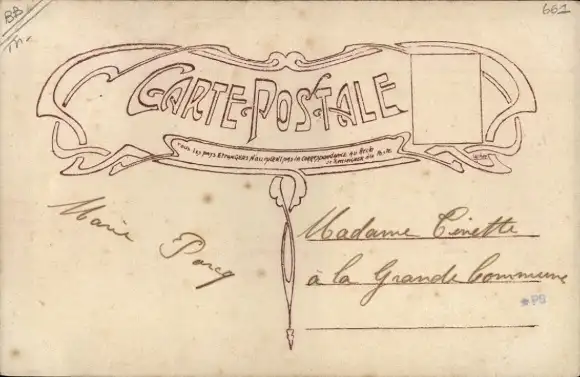 BB
661
CARTE POSTALE
Tous les pays Etrangers n'acceptent pas la correspondance au Recto
Marie Parcq
Madame Cinette
à la Grande Commune
PB